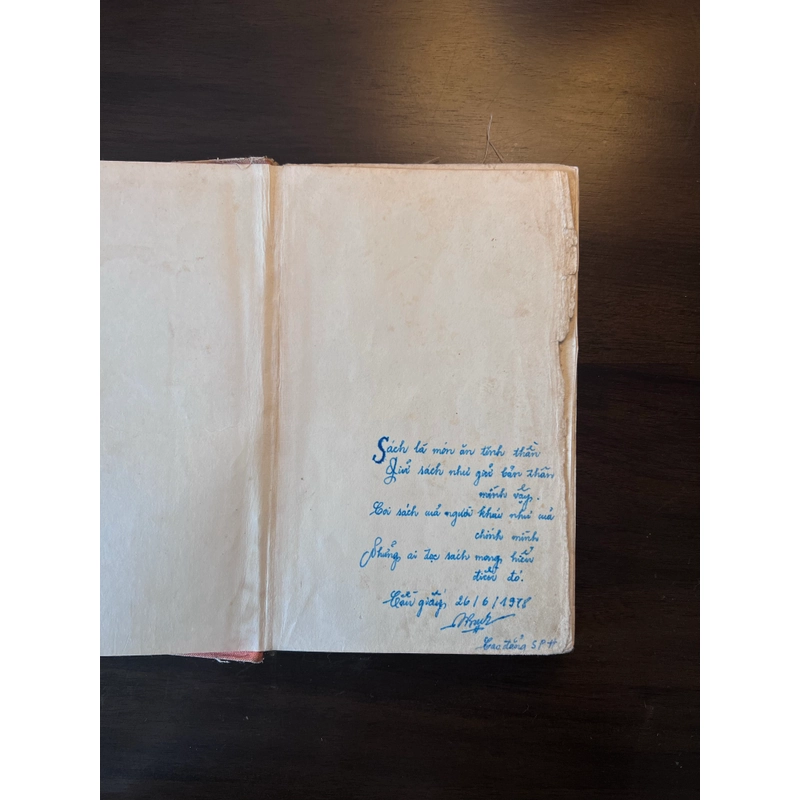 Sách là món ăn tinh thần
Giữ sách như giữ bản thân
mình vậy.
Coi sách của người khác như của
chính mình
Những ai đọc sách mong hiểu
điều đó.
Cầu giấy, 26/6/1978
Cao đẳng SP